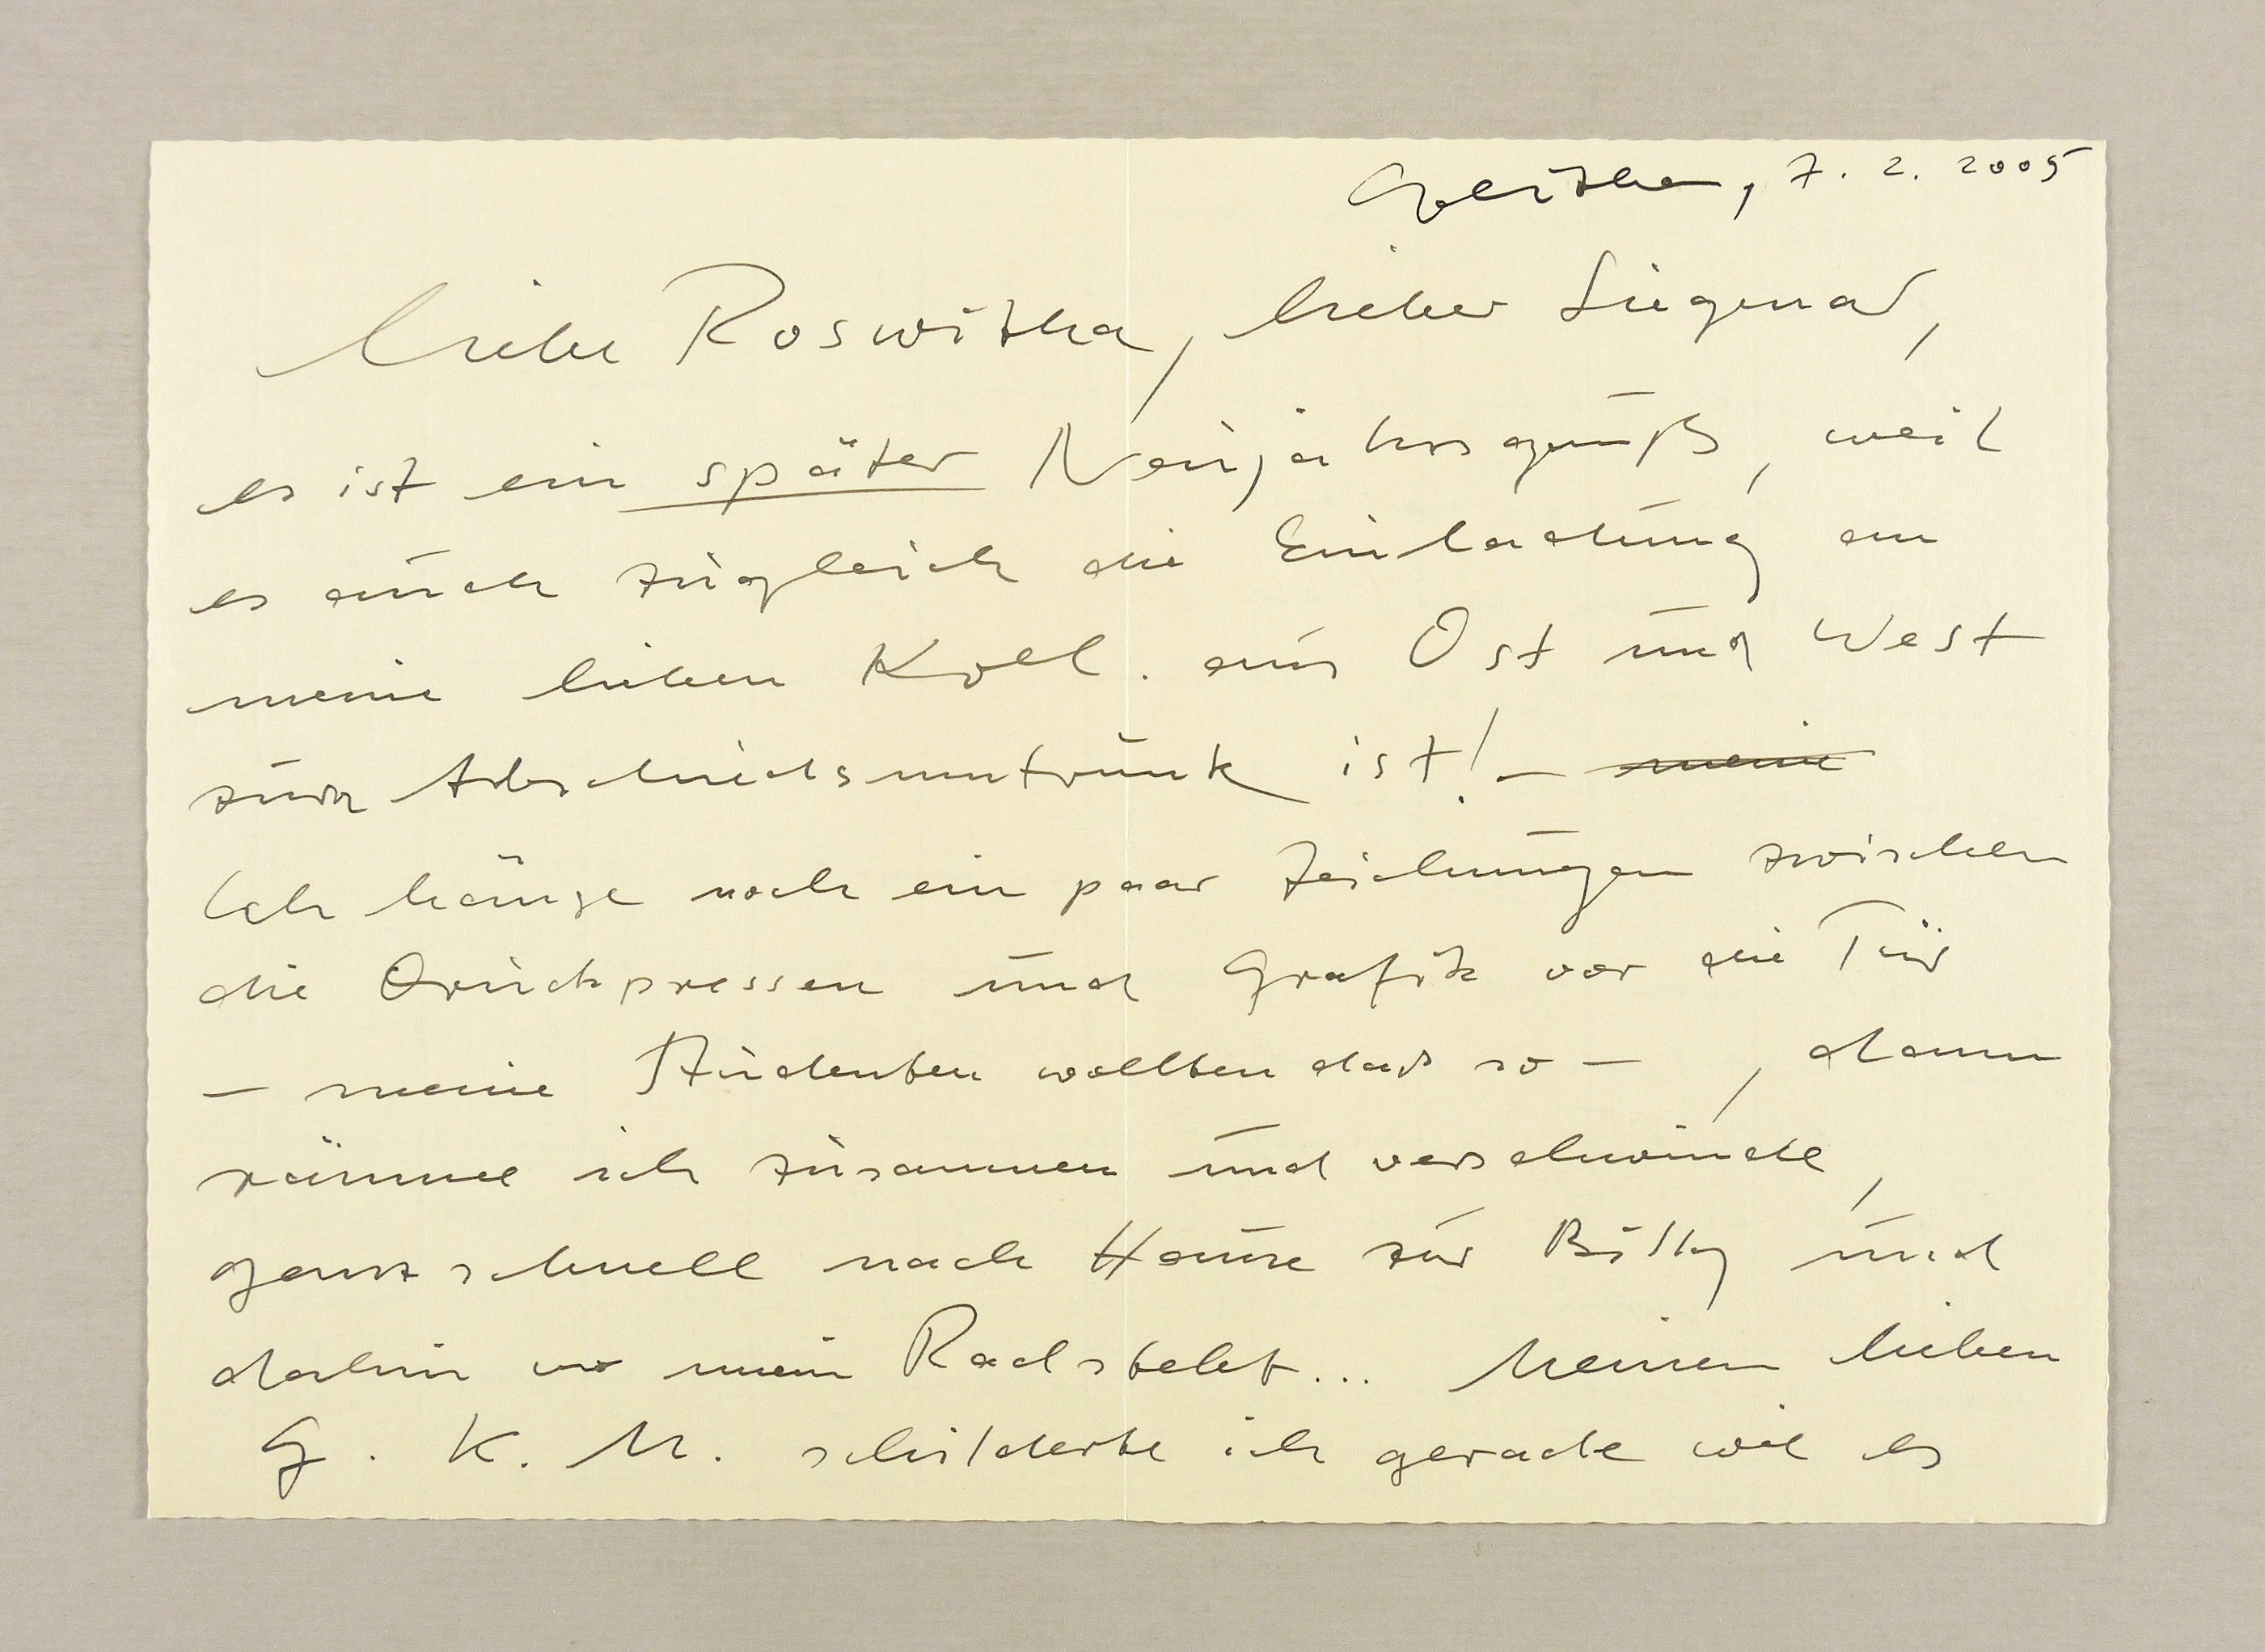 7. 2. 2005
Liebe Roswitha, lieber
es ist ein später Neujahrsgruß, weil
es auch zugleich die Einladung an
meine lieben Koll. aus Ost und West
zum Abschiedsumtrunk ist! – meine
Ich hänge noch ein paar Zeichnungen zwischen
die Druckpressen und Grafik vor die Tür
– meine Studenten wollten das so – , dann
räume ich zusammen und verschwinde,
ganz schnell nach Hause zur und
dahin wo mein Rad steht... Meinen lieben
G. K. M. schilderte ich gerade wie es